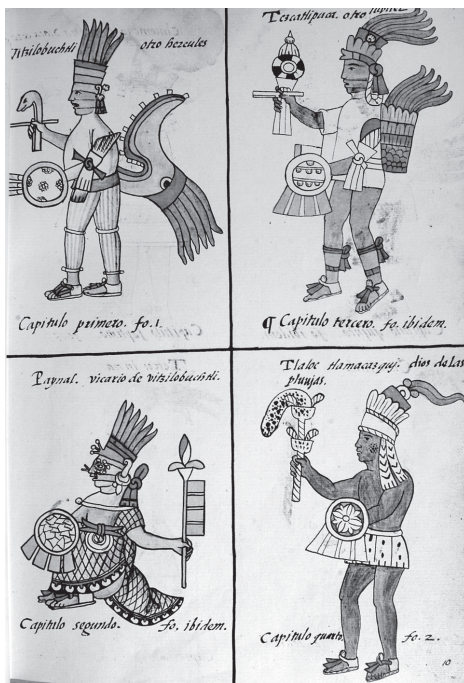 Vitzilobuchtli otro hercules
Capitulo primero. fo. 1.
Tezcatlipuca. otro jupiter.
¶ Capitulo tercero. fo. ibidem.
Paynal. vicario de vitzilobuchtli.
Capitulo segundo. fo. ibidem.
Tlaloc tlamacazqui. dios de las
pluuias.
Capitulo quarto. fo. 2.
10